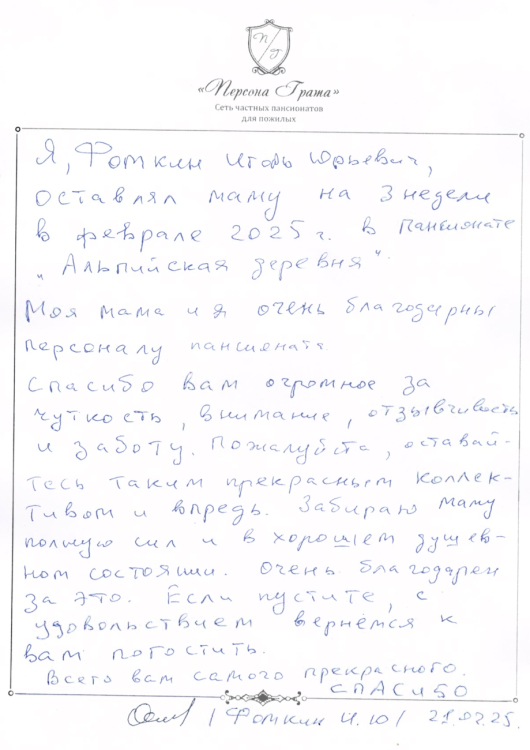 П/Г
«Персона Грата»
Сеть частных пансионатов
для пожилых
Я, Фомкин Игорь Юрьевич,
оставлял маму на 3 недели
в феврале 2025 г. в Пансионате
„Альпийская деревня".
Моя мама и я очень благодарны
персоналу пансионата
Спасибо вам огромное за
чуткость, внимание, отзывчивость
и заботу. Пожалуйста, оставай-
тесь таким прекрасным коллек-
тивом и впредь. Забираю маму
полную сил и в хорошем душев-
ном состоянии. Очень благодарен
за это. Если пустите, с
удовольствием вернёмся к
вам погостить.
Всего вам самого прекрасного.
СПАСИБО
/Фомкин И.Ю/ 21.02.25.